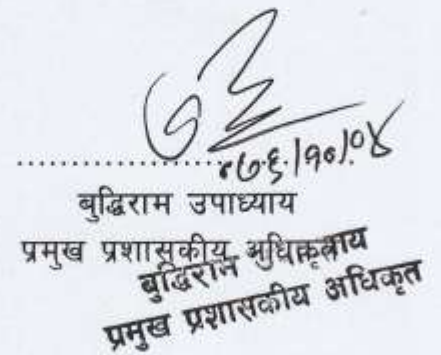 ०७६/१०/०४
बुद्धिराम उपाध्याय
प्रमुख प्रशासकीय अधिकृत
बुद्धिराम
प्रमुख प्रशासकीय अधिकृत